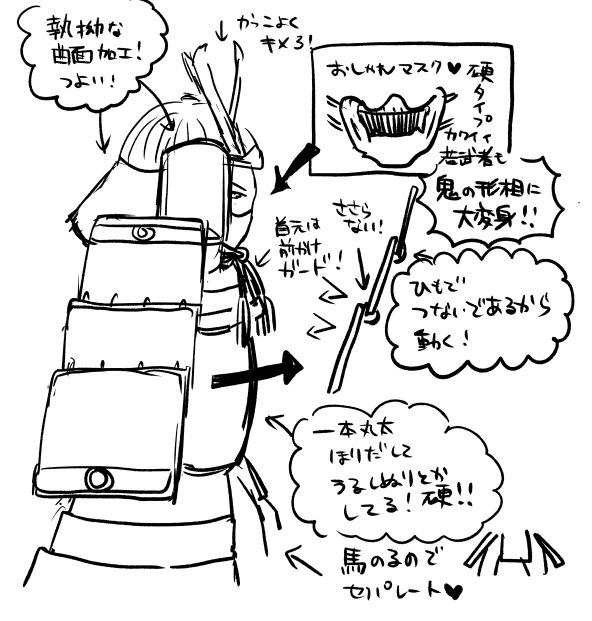 執拗な
曲面加工!
つよい!
かっこよく
キメろ!
おしゃれマスク♥
硬タイプ
カワイイ
若武者も
鬼の形相に
大変身!!
首元は
前かけ
ガード!
ささら
ない!
ひもで
つないであるから
動く!
一本丸太
ほりだして
うるしぬりとか
してる!硬!!
馬のるので
セパレート♥